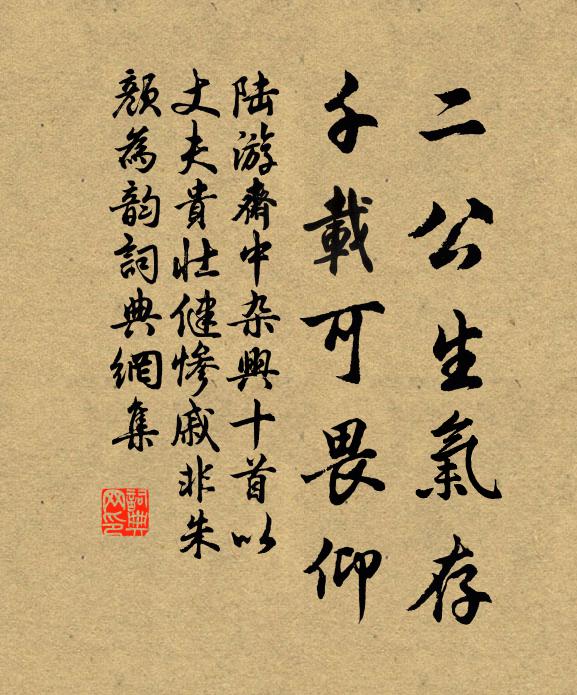 二公生氣存
千載可畏仰
陸游齋中杂興十首以
丈夫貴壯健慘戚非朱
顏為韵詞典網集
詞典网印